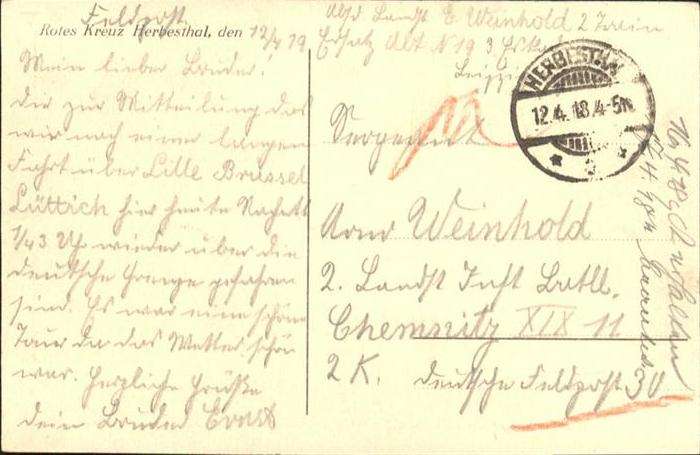 Feldpost
Rotes Kreuz Herbesthal, den 12/4 19
Mein lieber Bruder!
Dir zur Mitteilung das
wir nach einer langen
Fahrt über Lille Brüssel
Lüttich hier heute Nachmitt
1/43 Uhr wieder über die
deutsche Grenze gefahren
sind. Es war eine schöne
Tour da das Wetter schön
war. Herzliche Grüße
dein Bruder Ernst
Abs Landst E. Weinhold 2
Ersatz Abt N 19 3
Leipzig
HERBESTHAL
12.4.18.4-5N
Sergeant
Arno Weinhold
2. Landst Inft Batll.
Chemnitz XIX 11
2 K. Deutsche Feldpost 30